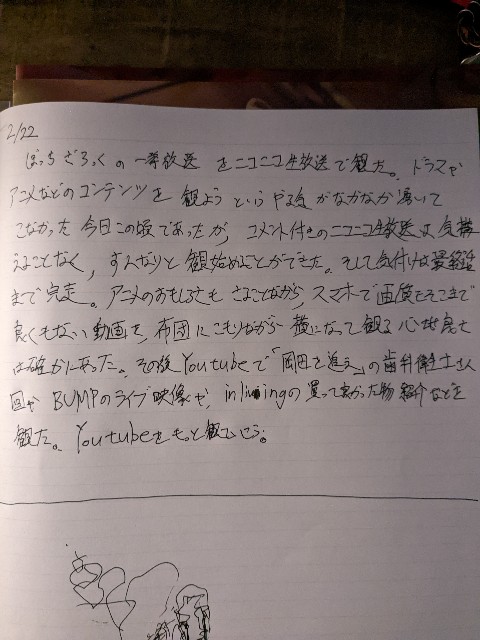 2/22
ぼっちざろっくの一挙放送をニコニコ生放送で観た。ドラマや
アニメなどのコンテンツを観ようというやる気がなかなか湧いて
こなかった今日この頃であったが、コメント付きのニコニコ生放送は気構
えることなく、すんなりと観始めることができた。そして気付けば最終話
まで完走。アニメのおもしろさもさることながら、スマホで画質もそこまで
良くもない動画を、布団にこもりながら横になって観る心地良さ
は確かにあった。その後Youtubeで「岡田を追え」の歯科衛生士さん
回や BUMPのライブ映像や、inlivingの買って良かった物紹介などを
観た。Youtubeをもっと観ていこう。